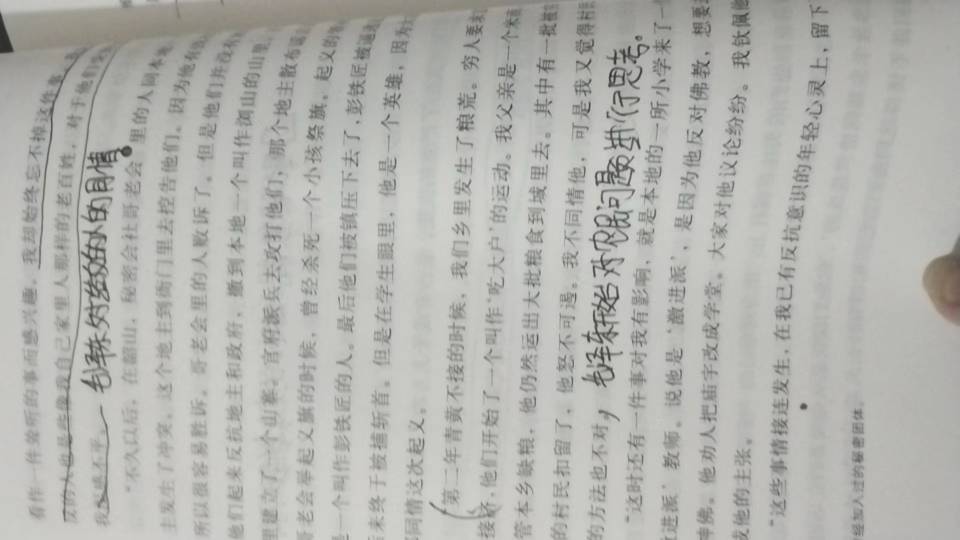 看作一件耸听的事而感兴趣，我却始终忘不掉这件事
的人也是些像我自己家里人那样的老百姓，对于他们
我深感不平。 毛泽东对贫苦的人的同情。
“不久以后，在韶山，秘密会社哥老会 里的人同本地
主发生了冲突。这个地主到衙门里去控告他们。因为他有
所以很容易胜诉。哥老会里的人败诉了。但是他们并没有
他们起来反抗地主和政府，撤到本地一个叫作浏山的山里
里建立了一个山寨。官府派兵去攻打他们，那个地主散布谣
哥老会举起义旗的时候，曾经杀死一个小孩祭旗。起义的
是一个叫作彭铁匠的人。最后他们被镇压下去了，彭铁匠被逼
后来终于被捕斩首。但是在学生眼里，他是一个英雄，因为
都同情这次起义。
“第二年青黄不接的时候，我们乡里发生了粮荒。穷人要求
接济，他们开始了一个叫作‘吃大户’的运动。我父亲是一个米商
管本乡缺粮，他仍然运出大批粮食到城里去。其中有一批被
的村民扣留了，他怒不可遏。我不同情他，可是我又觉得村
的方法也不对， 毛泽东开始对农民问题进行思考。
“这时还有一件事对我有影响，就是本地的一所小学来了一
激进派’教师。说他是‘激进派’，是因为他反对佛教，想要
神佛。他劝人把庙宇改成学堂。大家对他议论纷纷。我钦佩他
成他的主张。
“这些事情接连发生，在我已有反抗意识的年轻心灵上，留下
经加入过的秘密团体。